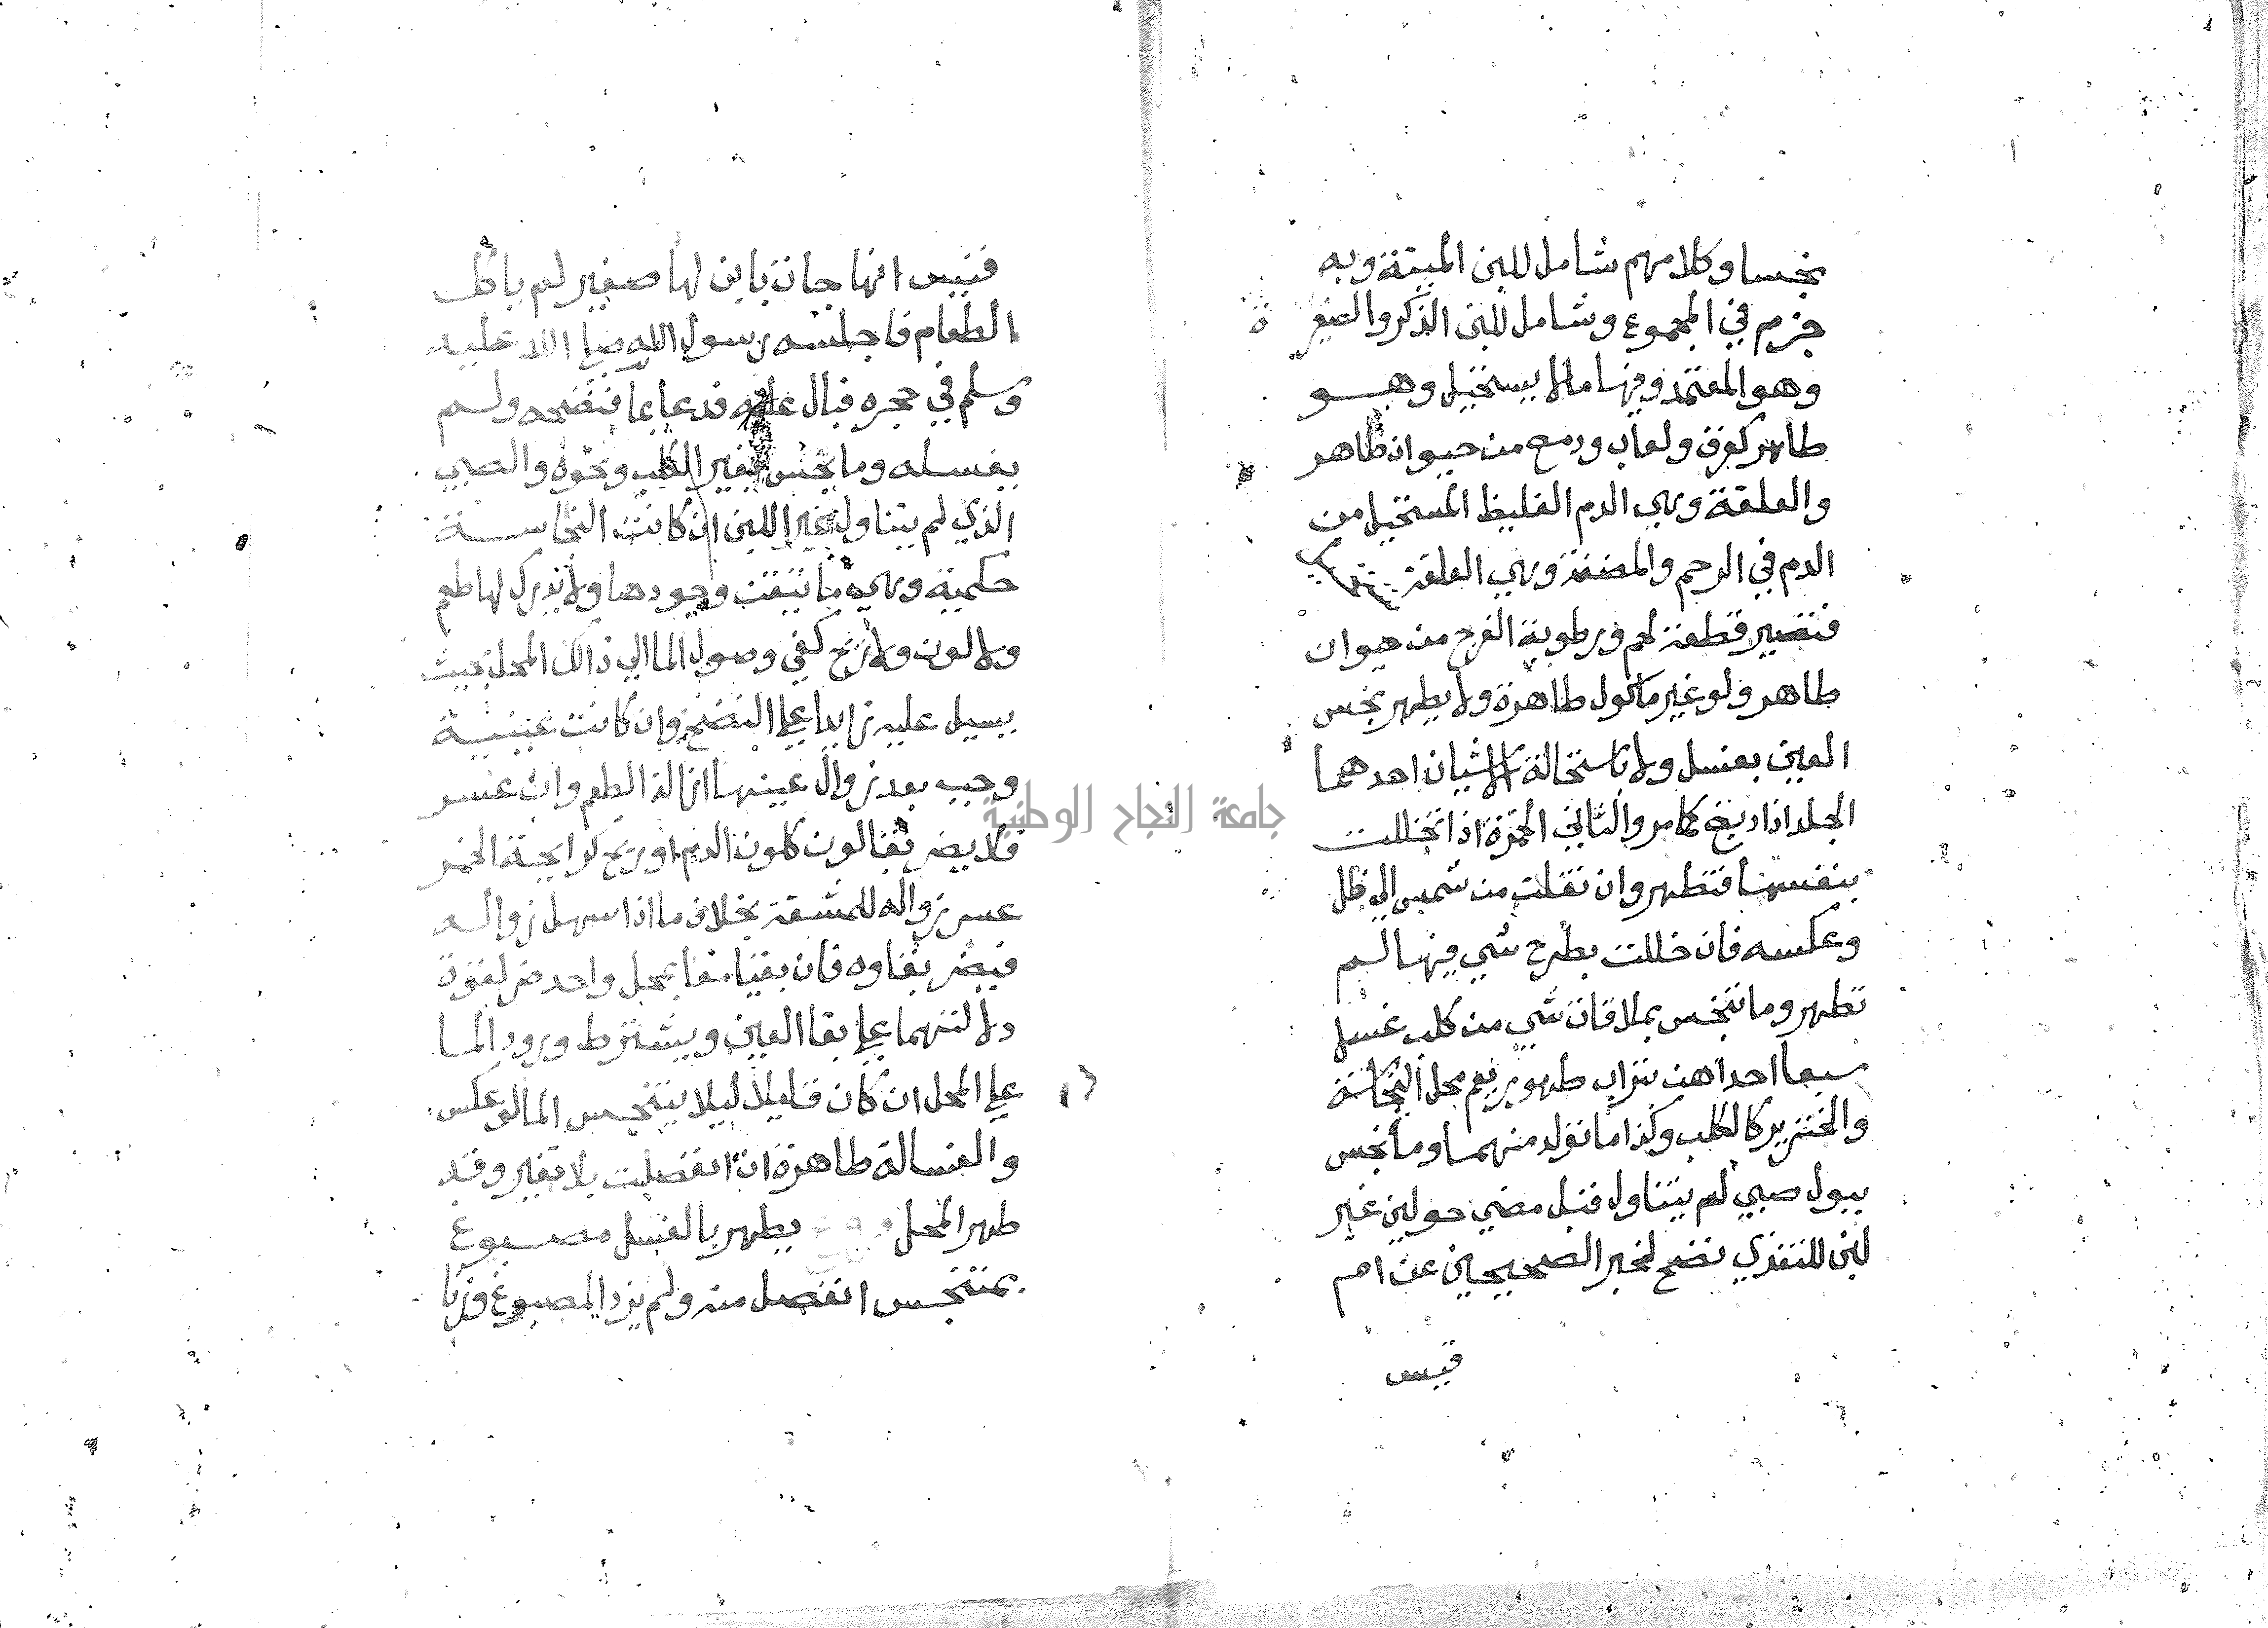 نجسا وكلامهم شامل للبن الميتة وبه
جزم في المجموع وشامل للبن الذكر والصغيرة
وهو المعتمد وفيها ما لا يستحيل وهو
طاهر كعرق ولعاب ودمع من حيوان طاهر
والعلقة وهي الدم الغليظ المستحيل من
الدم في الرحم والمضغة وهي العلقة
فتصير قطعة لحم ورطوبة الفرج من حيوان
طاهر ولو غير ماكول طاهرة ولا يطهر نجس
العين بغسل ولا باستحالة الا شيان احدهما
الجلد اذا دبغ كما مر والثاني الخمرة اذا تخللت
بنفسها فتطهر وان نقلت من شمس الي ظل
وعكسه فان خللت بطرح شي فيها لم
تطهر وما تنجس بملاقات شي من كلب غسل
سبعا احداهن بتراب طهور يعم محل النجاسة
والخنزير كالكلب وكذا ما تولد منهما وما نجس
ببول صبي لم يتناول قبل مضي حولين غير
لبن للتغذي نضح لخبر الصحيحين عن ام
قيس
قيس انها جات بابن لها صغير لم ياكل
الطعام فاجلسه رسول الله صلي الله عليه
وسلم في حجره فبال عليه فدعا بما فنضحه ولم
يغسله وما نجس بغير الكلب ونحوه والصبي
الذي لم يتناول غير اللبن ان كانت النجاسة
حكمية وهي ما تيقنت وجودها ولا يدرك لها طعم
ولا لون ولا ريح كفي وصول الما الي ذالك المحل بحيث
يسيل عليه زايدا علي النضح وان كانت عينية
وجب بعد زوال عينها ازالة الطعم وان عسر
فلا يضر بقا لون كلون الدم او ريح كرايحة الخمر
عسر زواله للمشقة بخلاف ما اذا سهل زواله
فيضر بقاوه فان بقيا معا بمحل واحد ضر لقوة
دلالتهما علي بقا العين ويشترط ورود الما
علي المحل ان كان قليلا ليلا يتنجس الما لو عكس
والغسالة طاهرة ان انفصلت بلا تغير وقد
طهر المحل يطهر بالغسل مصبوغ
بمتنجس انفصل منه ولم يزد المصبوغ وزنا
جامعة النجاح الوطنية